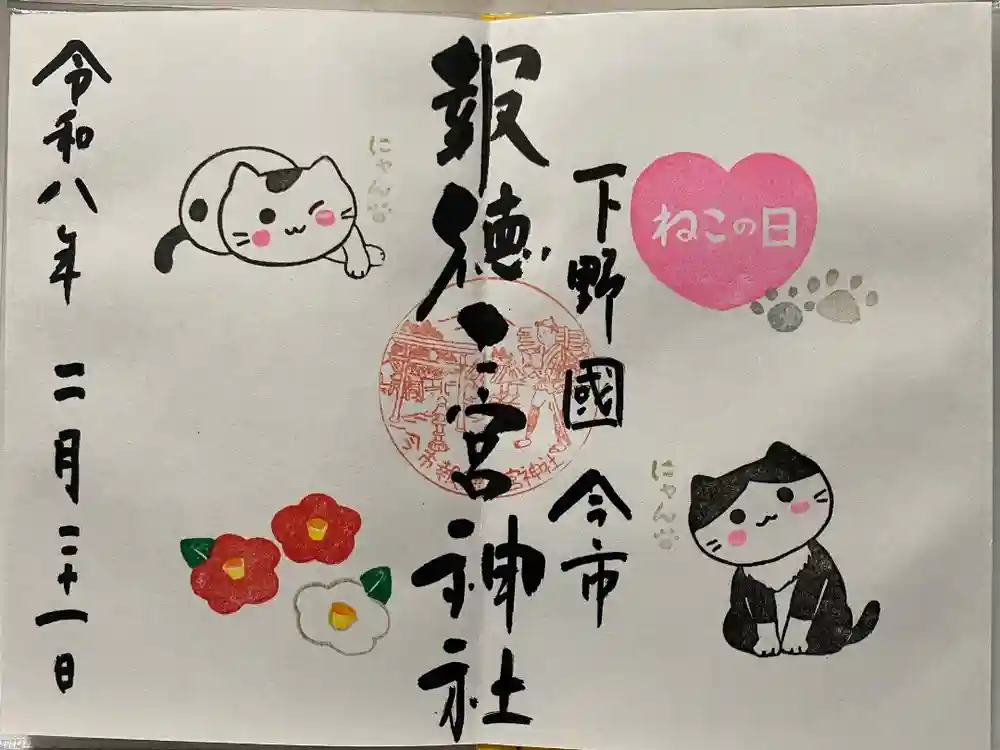 ねこの日
にゃん
下野國 今市
報徳二宮神社
宮神社
にゃん
令和八年 二月二十一日